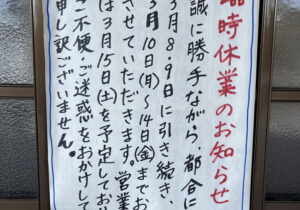 臨時休業のお知らせ
誠に勝手ながら、都合に
3月8・9日に引き続き、
3月10日(月)〜14日(金)まで
させていただきます。営業
は3月15日(土)を予定してお
ご不便・ご迷惑をおかけして
申し訳ございません。